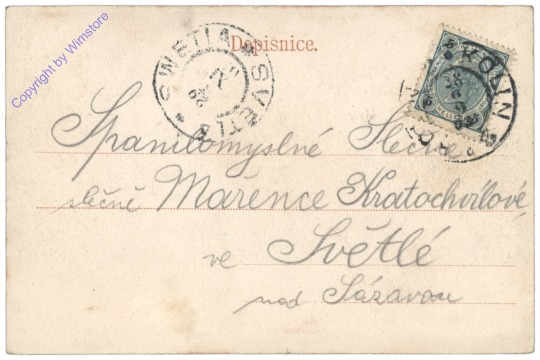 Dopisnice.
SWETLA * SVĚTLÁ *
KOLIN
Spanilomyslné Slečně
slečně Marence Kratochvílové,
ve Světlé
nad Sázavou
Copyright by Wimstore